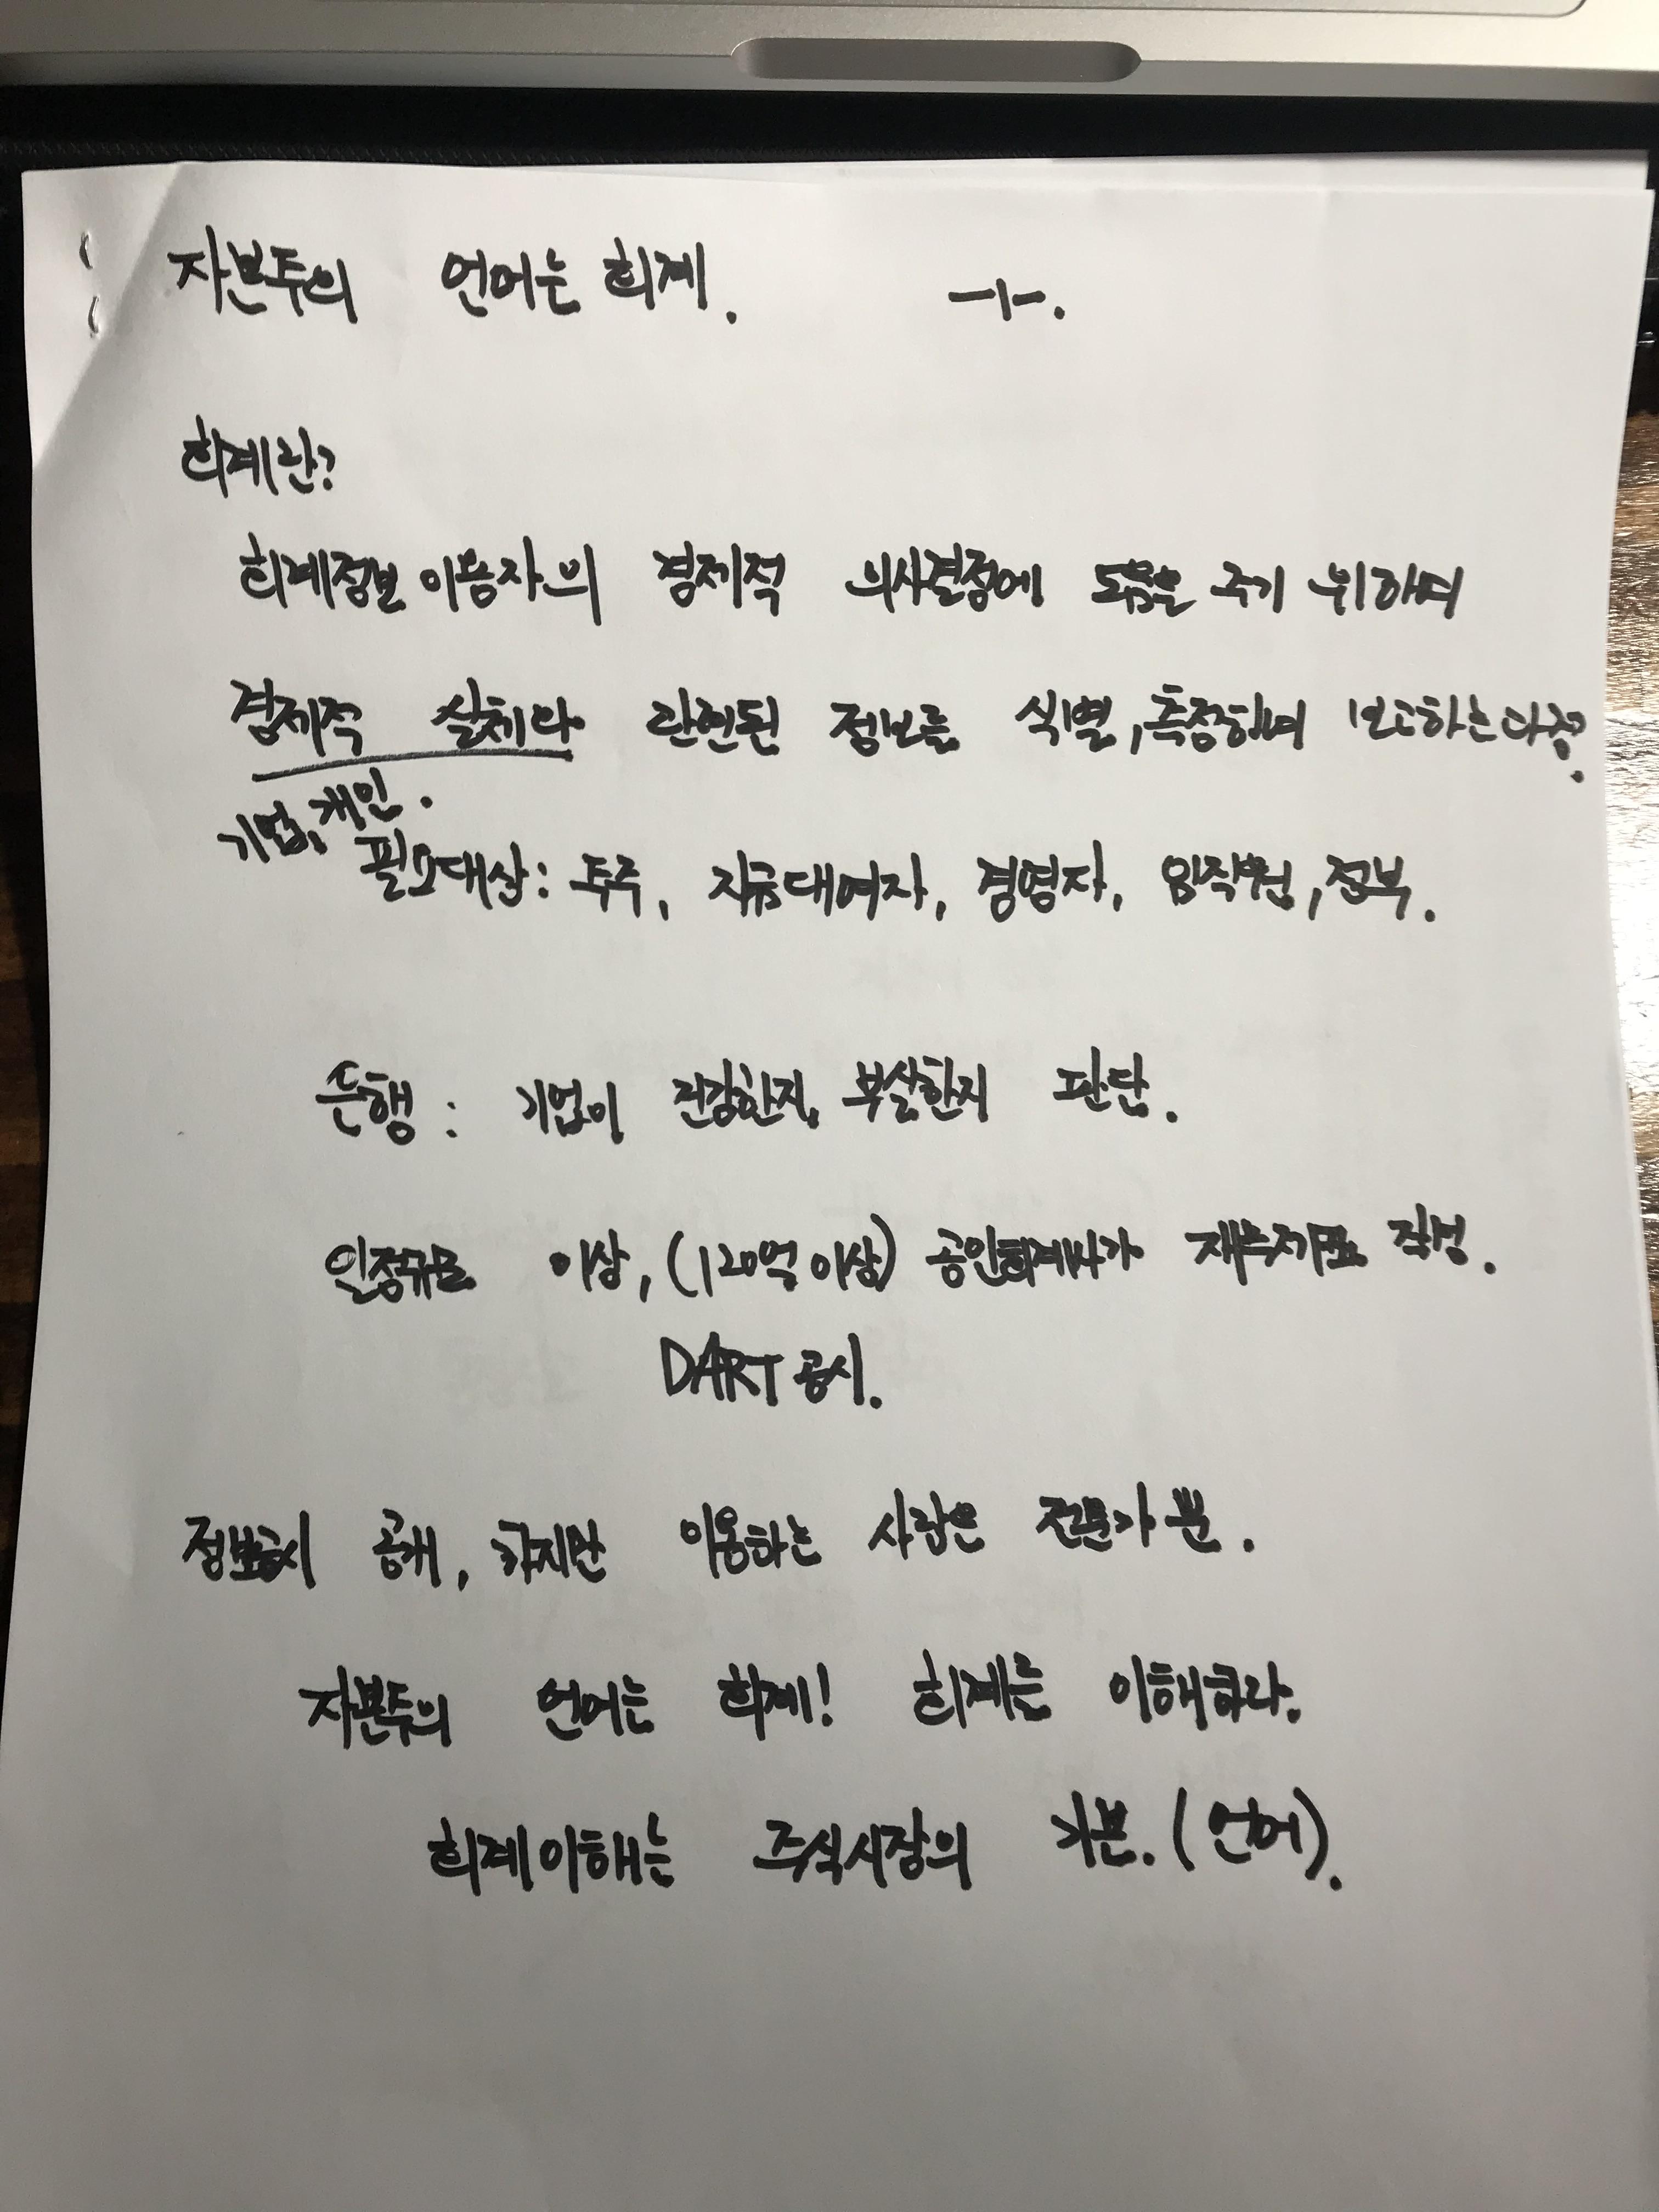 자본주의 언어는 회계. -1-.
회계란?
회계정보 이용자의 경제적 의사결정에 도움을 주기 위하여
경제적 실체와 관련된 정보를 식별, 측정하여 보고하는 과정.
기업, 개인.
필요대상: 주주, 자금대여자, 경영자, 임직원, 정부.
은행: 기업이 건강한지, 부실한지 판단.
일정규모 이상, (120억 이상) 공인회계사가 재무제표 작성.
DART 공시.
정보공시 공개, 하지만 이용하는 사람은 전문가 뿐.
자본주의 언어는 회계! 회계를 이해하라.
회계이해는 주식시장의 기본. (언어).